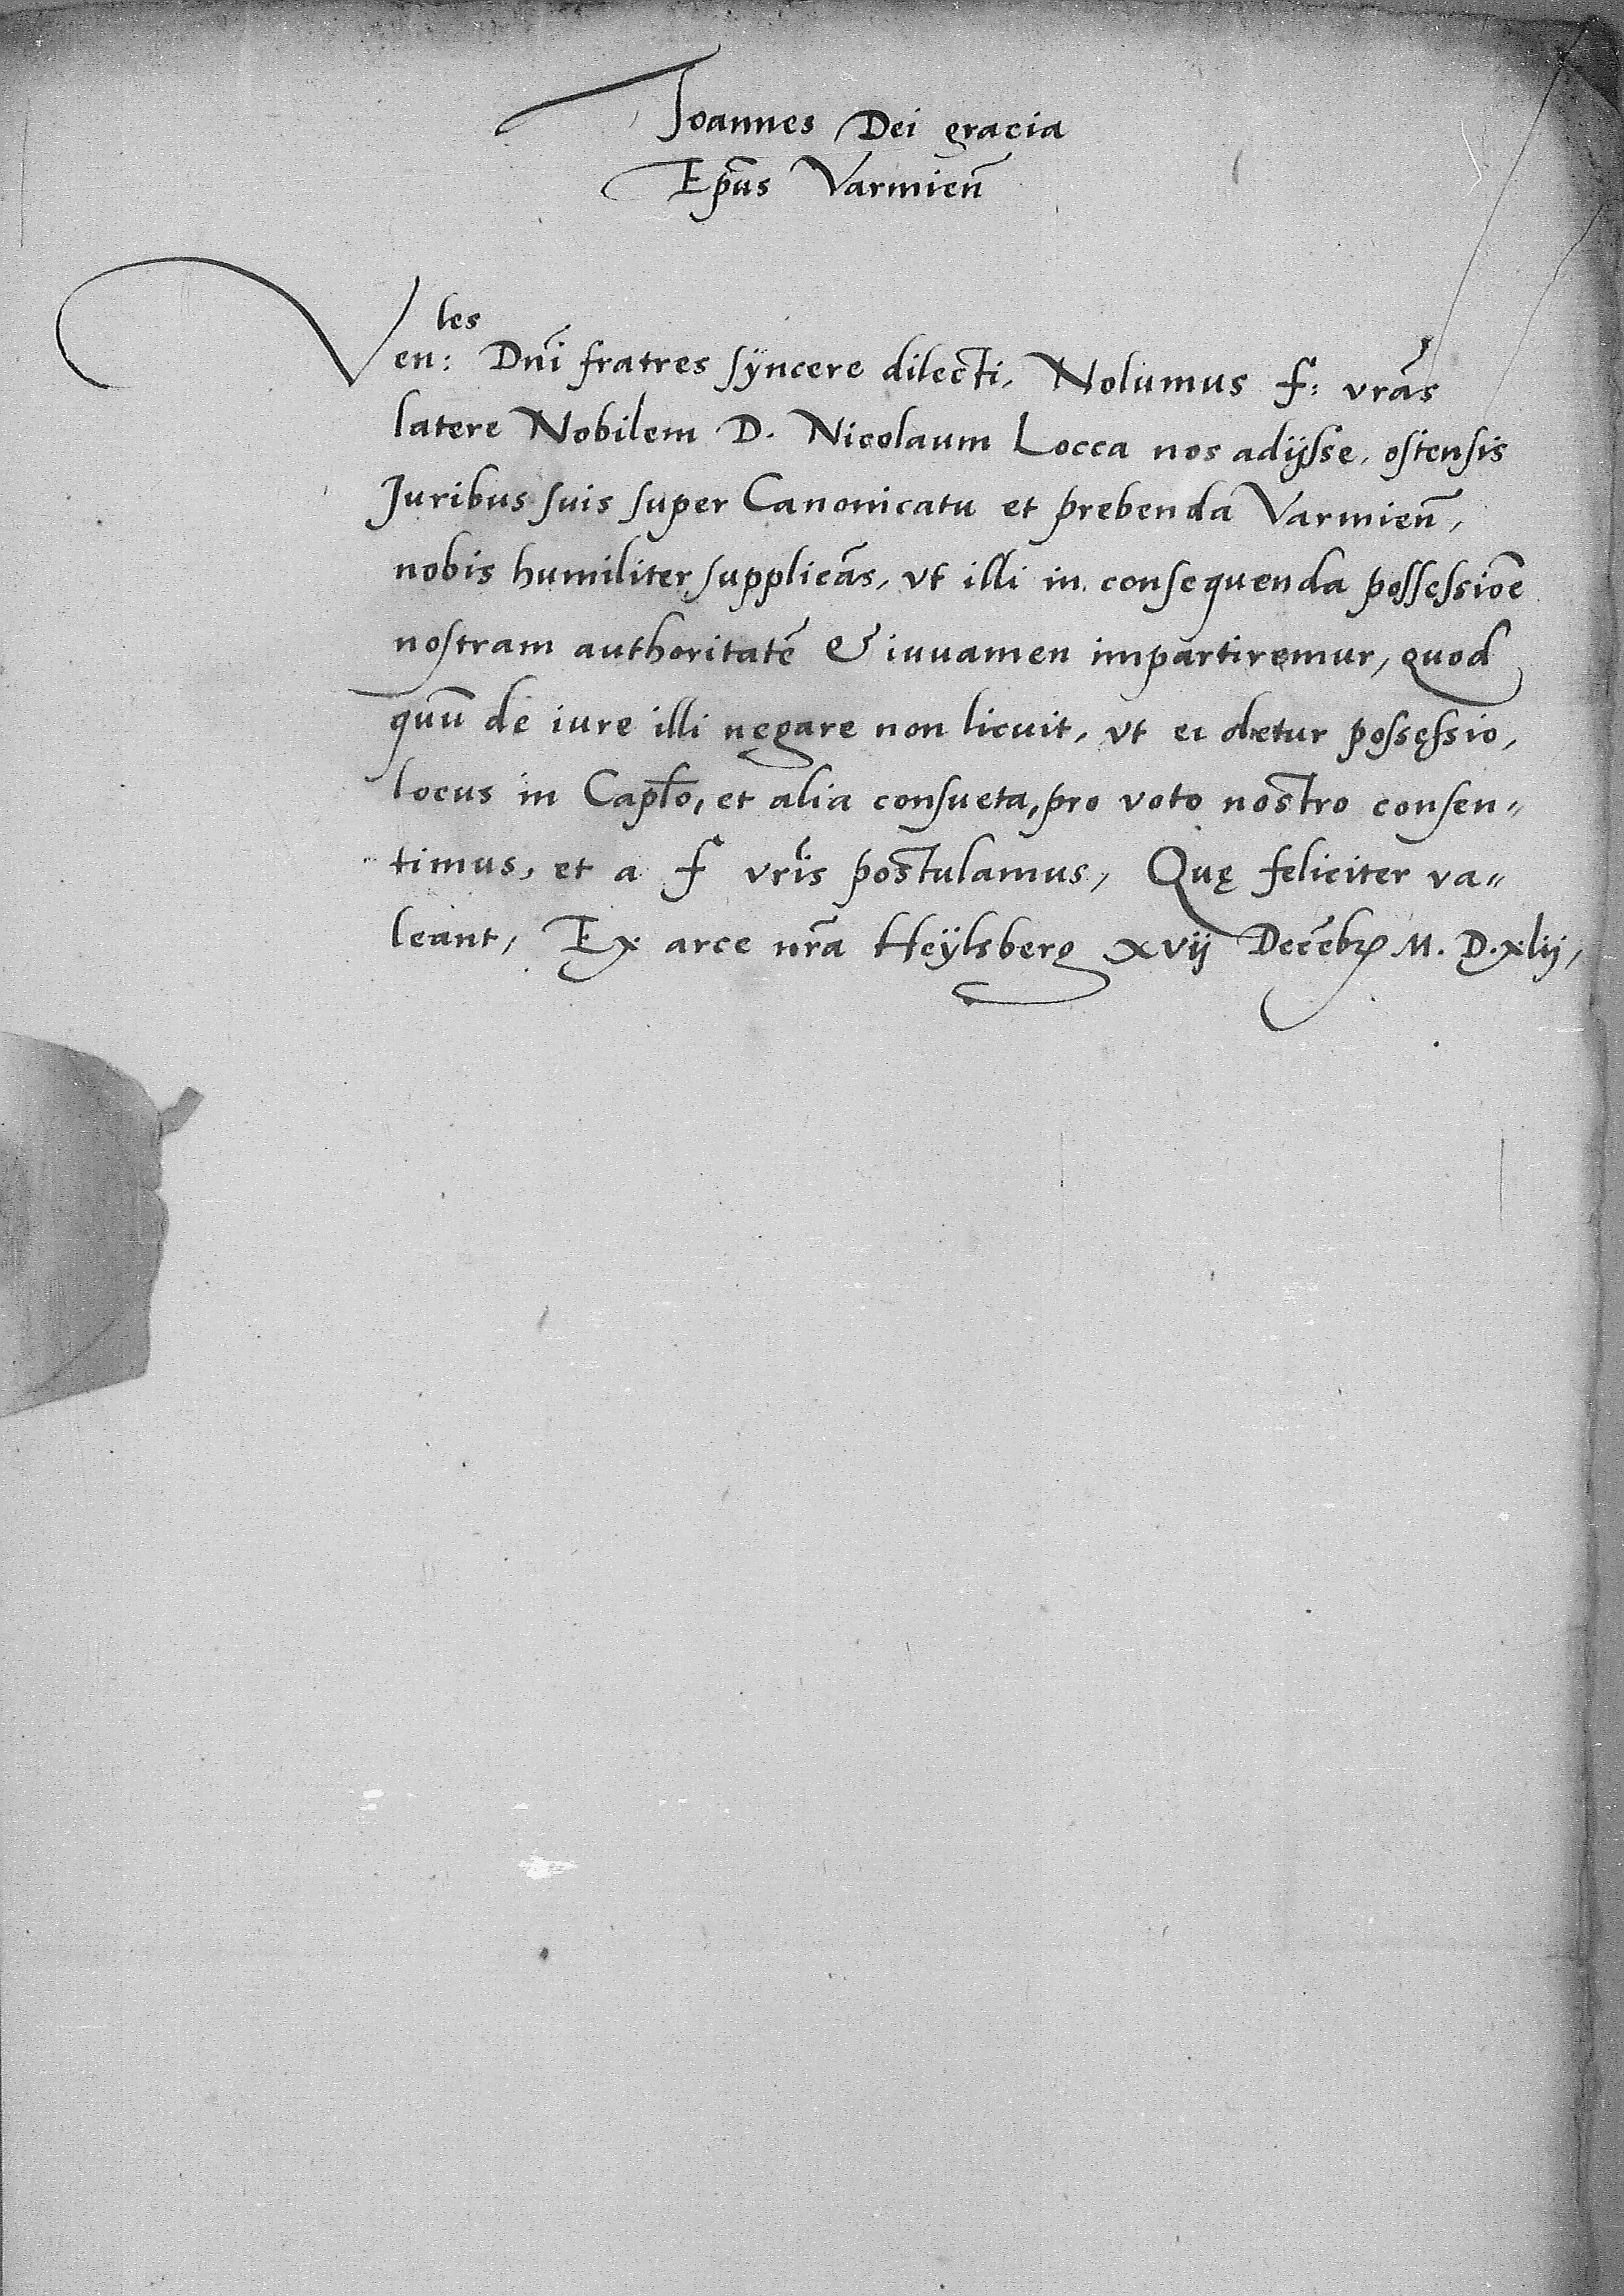 Joannes Dei gracia
Epūs Varmień
Ven:les Dnī fratres syncere dilecti, Nolumus f: vrās
latere Nobilem D. Nicolaum Locca nos adijsse, ostensis
Juribus suis super Canonicatu et prebenda Varmień,
nobis humiliter supplicās, vt illi in consequenda possessiōe
nostram authoritatē & iuuamen impartiremur, quod
quū de iure illi negare non licuit, vt ei detur possęssio,
locus in Capło, et alia consueta, pro voto nostro consen„
timus, et a f vrīs postulamus, Quę feliciter va„
leant, Ex arce nrā Heÿlsberg xvij Decēbꝝ M. D. xlij,